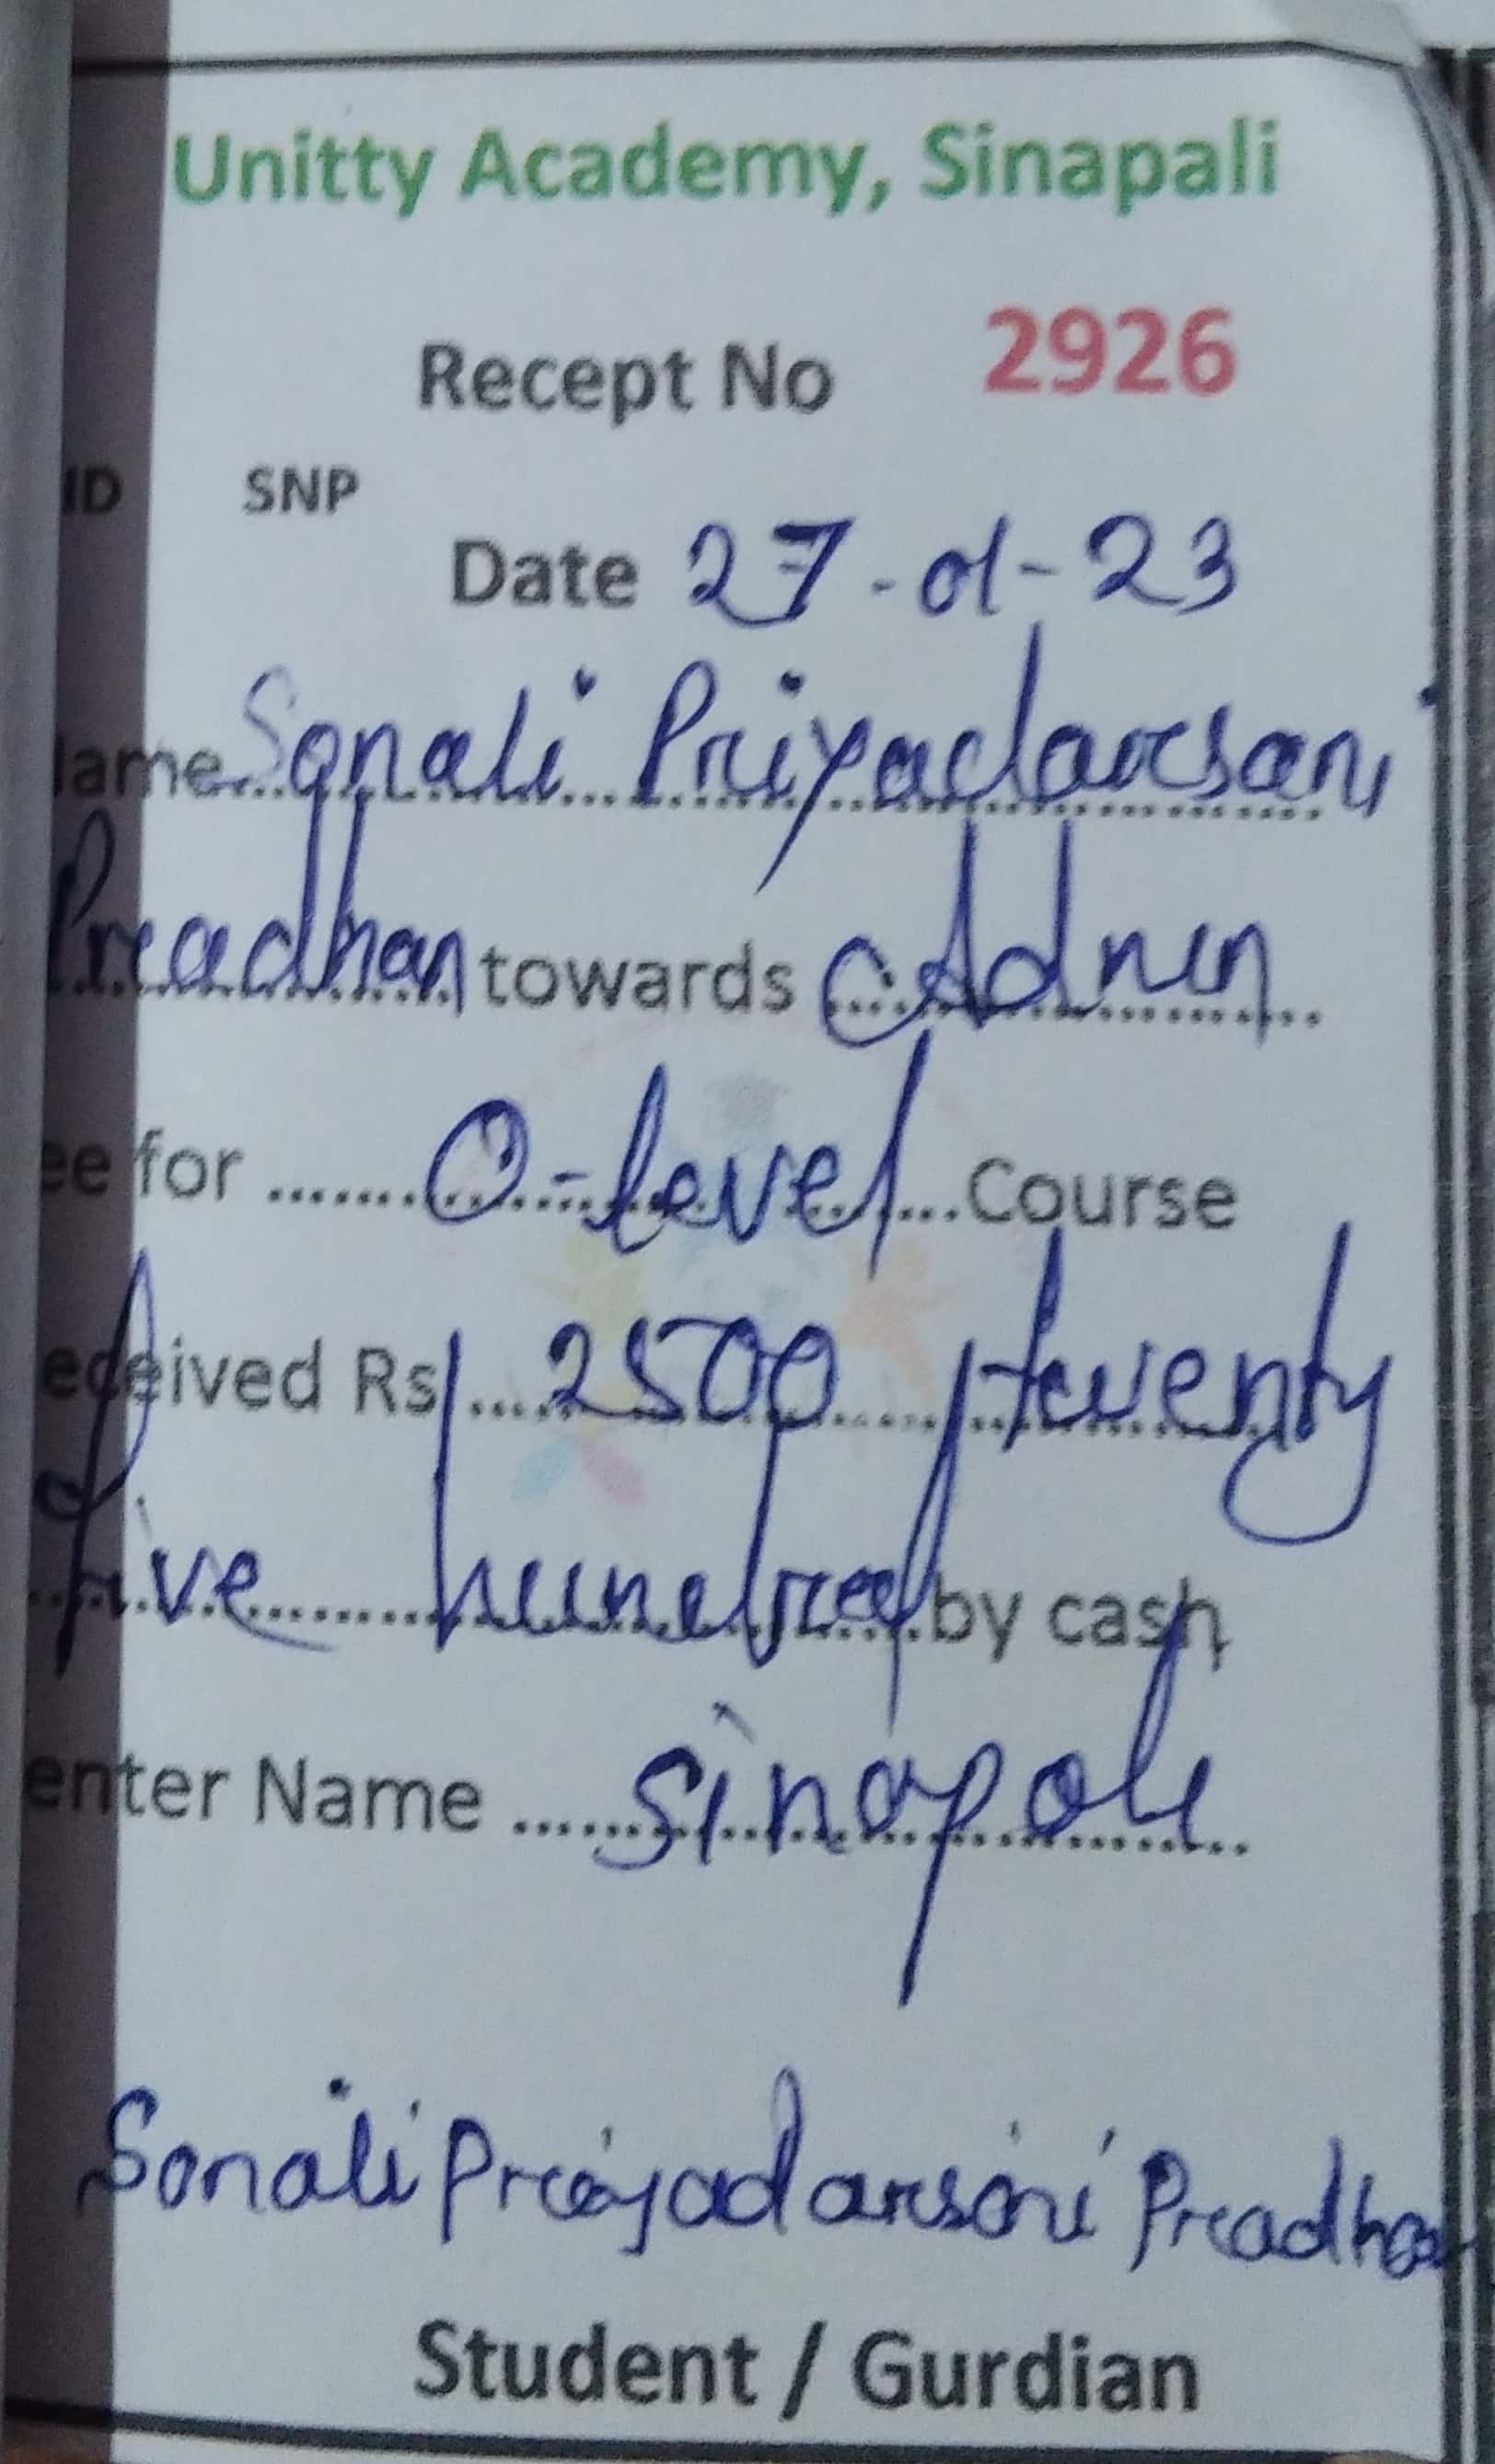 Unitty Academy, Sinapali
Recept No 2926
ID SNP
Date 27-01-23
ame Sonali Priyadarsani
Pradhan towards Admn
ee for ....... O-level ... Course
eceived Rs ... 2500 twenty
five hundred by cash
enter Name ...... Sinapali
Sonali Priyadarsani Pradhan
Student / Gurdian